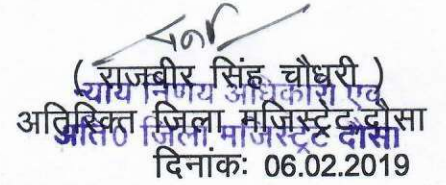 ( राजबीर सिंह चौधरी )
न्याय निर्णय अधिकारी एवं
अतिरिक्त जिला मजिस्ट्रेट दौसा
अति० जिला मजिस्ट्रेट दौसा
दिनांकः 06.02.2019